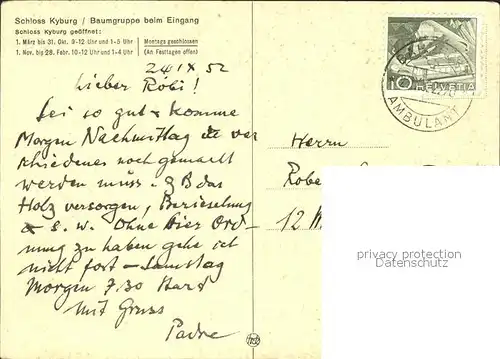 Schloss Kyburg / Baumgruppe beim Eingang
Schloss Kyburg geöffnet:
1. März bis 31. Okt. 9-12 Uhr und 1-5 Uhr | Montags geschlossen
1. Nov. bis 28. Febr. 10-12 Uhr und 1-4 Uhr | (An Festtagen offen)
24 IX 52
Lieber Röbi!
Sei so gut & komme
Morgen Nachmittag da ver
schiedenes noch gemacht
werden muss. z B das
Holz versorgen, Berieselung
u s. w. Ohne hier Ord-
nung zu haben gehe ich
nicht fort – Samstag
Morgen 7.30
Mit Gruss
Padre
10 HELVETIA
AMBULANT
Herrn
Robe
12
privacy protection
Datenschutz